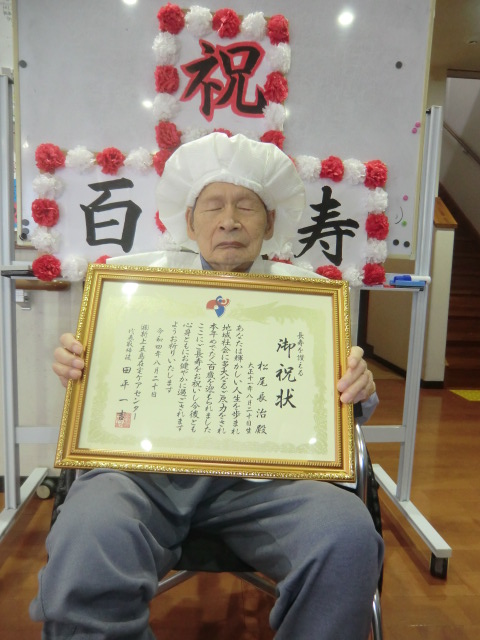 祝
百寿
長寿を讃える
御祝状
松尾長治殿
大正十一年八月二十日生
あなたは輝かしい人生を歩まれ
地域社会に多大なるご尽力をされ
本年めでたく百歳を迎えられました
ここにご長寿をお祝いし今後とも
心身ともにお健やかに過ごされます
ようお祈りいたします
令和四年八月二十日
代表取締役 田平一